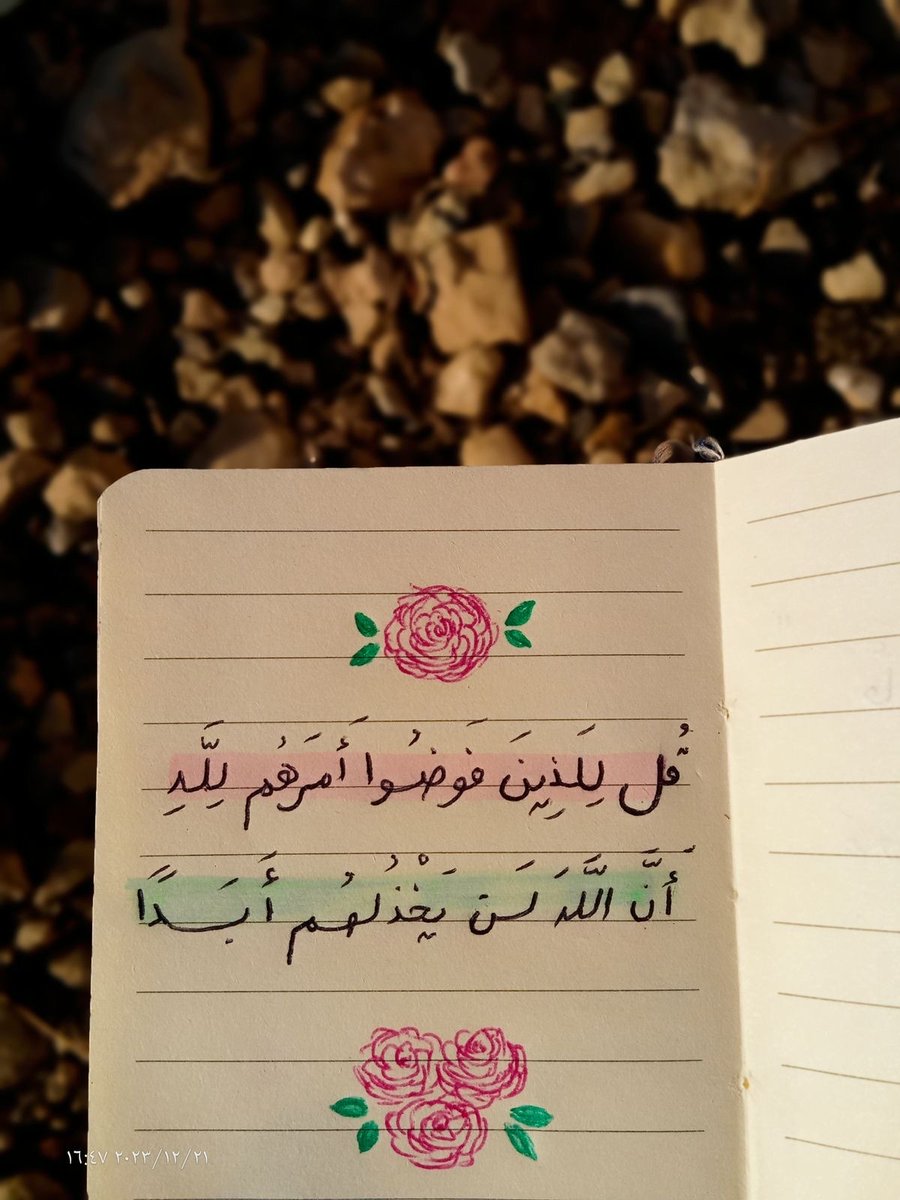 قُل لِلَذِينَ فَوضُوا أَمرَهُم لِلَّهِ
أَنَّ اللَّهَ لَن يَخْذُلَهُم أَبَدًا
١٦:٤٧ ٢٠٢٣/١٢/٢١